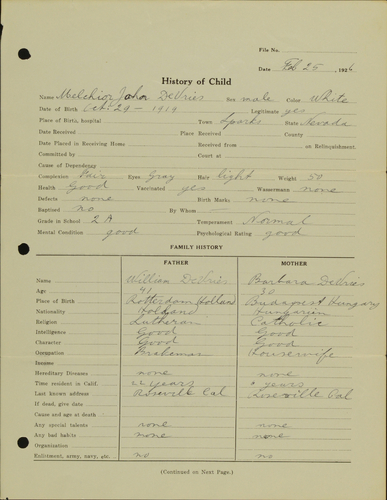 File No.
Date Feb 25, 1926
History of Child
Name Melchior John DeVries Sex male Color White
Date of Birth Oct. 29 - 1919 Legitimate yes
Place of Birth, hospital Town Sparks State Nevada
Date Received Place Received County
Date Placed in Receiving Home Received from on Relinquishment.
Committed by Court at
Cause of Dependency
Complexion Fair Eyes Gray Hair light Weight 50
Health Good Vaccinated yes Wassermann none
Defects none Birth Marks none
Baptised no By Whom —
Grade in School 2A Temperament Normal
Mental Condition good Psychological Rating good
FAMILY HISTORY
FATHER MOTHER
Name William DeVries Barbara DeVries
Age 41 30
Place of Birth Rotterdam Holland Budapest Hungary
Nationality Holland Hungarian
Religion Lutheran Catholic
Intelligence Good Good
Character Good Good
Occupation Brakeman Housewife
Income
Hereditary Diseases none none
Time resident in Calif. 22 years years
Last known address Roseville Cal Roseville Cal
If dead, give date
Cause and age at death
Any special talents none none
Any bad habits none none
Organization
Enlistment, army, navy, etc. no no
(Continued on Next Page.)